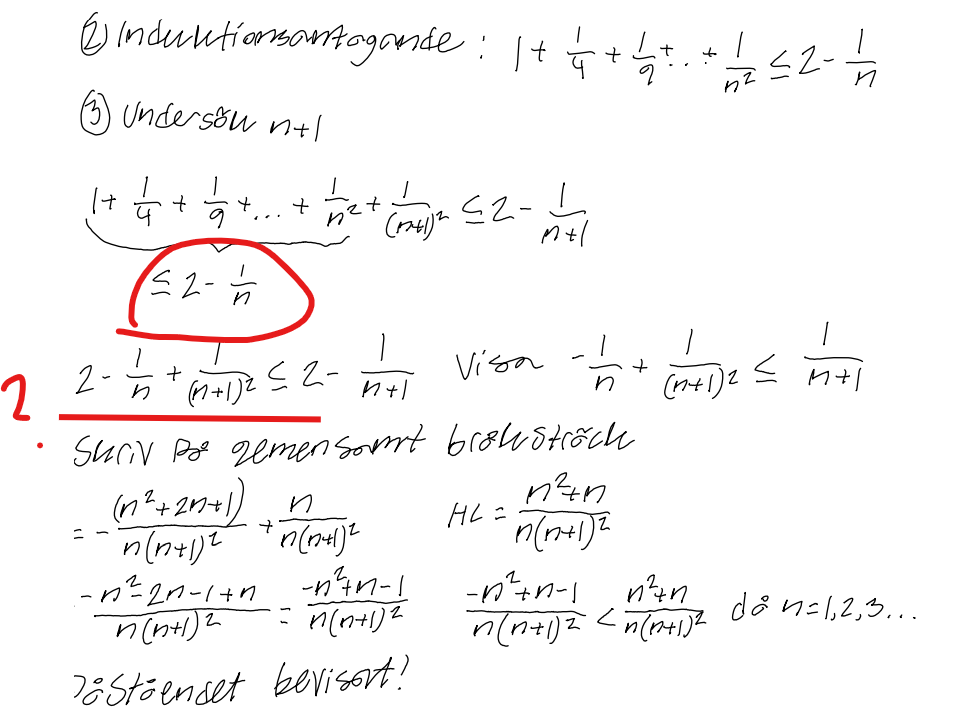 ② Induktionsantagande : 1 + 1/4 + 1/9 + .. + 1/n² ≤ 2 - 1/n
③ Undersök n+1
1 + 1/4 + 1/9 + ... + 1/n² + 1/(n+1)² ≤ 2 - 1/(n+1)
≤ 2 - 1/n
2 - 1/n + 1/(n+1)² ≤ 2 - 1/(n+1) Visa -1/n + 1/(n+1)² ≤ 1/(n+1)
?
Skriv på gemensamt bråksträck
= - (n²+2n+1)/(n(n+1)²) + n/(n(n+1)²) HL = (n²+n)/(n(n+1)²)
(-n²-2n-1+n)/(n(n+1)²) = (-n²+n-1)/(n(n+1)²) (-n²+n-1)/(n(n+1)²) < (n²+n)/(n(n+1)²) då n=1,2,3...
Påståendet bevisat!